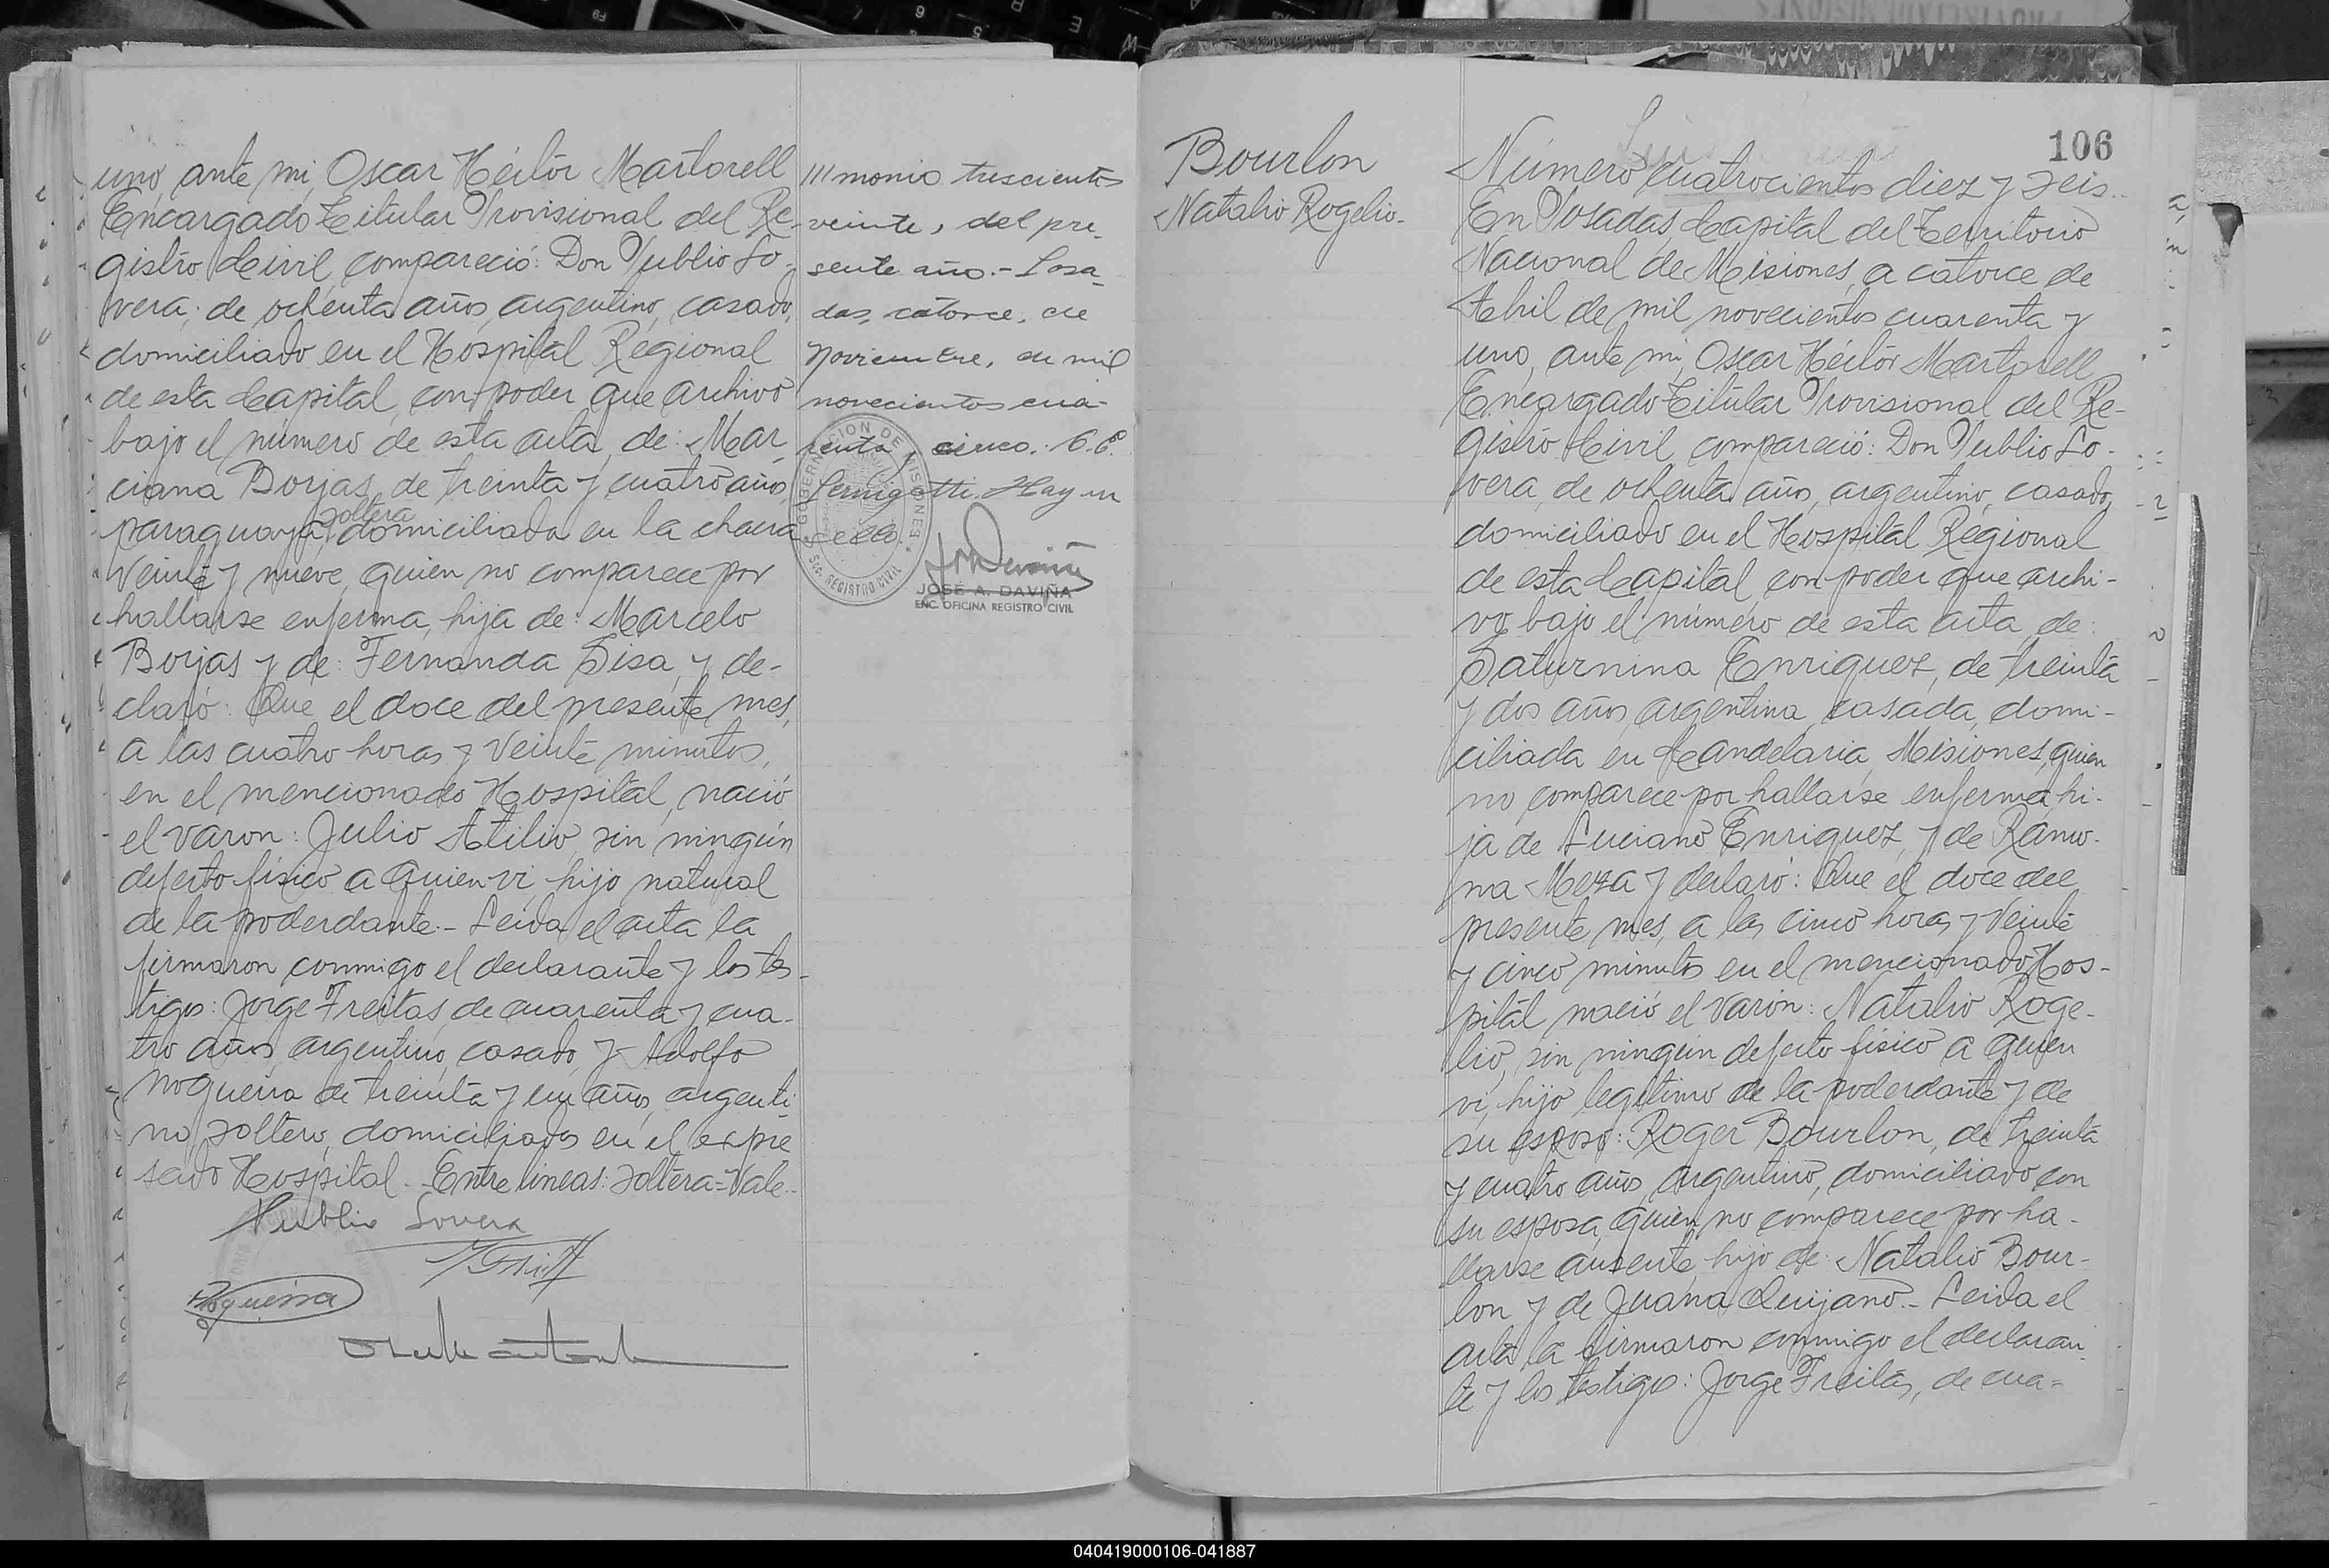 uno, ante mi, Oscar Héctor Martorell
Encargado Titular Provisional del Re-
gistro Civil, compareció: Don Publio Lo-
vera; de ochenta años, argentino, casado,
domiciliado en el Hospital Regional
de esta Capital, con poder que archivo
bajo el número de esta acta, de: Mar-
ciana Borjas, de treinta y cuatro años,
soltera
paraguaya, domiciliada en la chacra
veinte y nueve, quien no comparece por
hallarse enferma, hija de: Marcelo
Borjas y de: Fernanda Sisa, y de-
claró: Que el doce del presente mes,
a las cuatro horas y veinte minutos,
en el mencionado Hospital, nació
el varon: Julio Atilio, sin ningún
defecto físico a quien vi, hijo natural
de la poderdante.- Leida el acta la
firmaron conmigo el declarante y los tes-
tigos: Jorge Freitas, de cuarenta y cua-
tro años, argentino, casado, y Adolfo
Nogueira de treinta y un años, argenti-
no, soltero, domiciliados en el expre
sado Hospital. Entre lineas: soltera=Vale.-
Publio Lovera
Nogueira
monio trescientos
veinte, del pre-
sente año.- Posa-
das, catorce, de
Noviembre, de mil
novecientos cua-
renta y cinco.
Hay un
sello.
GOBERNACION DE MISIONES
SEC. REGISTRO CIVIL
JOSÉ A. DAVIÑA
ENC. OFICINA REGISTRO CIVIL
106
Bourlon
Natalio Rogelio.
Número cuatrocientos diez y seis..
En Posadas, Capital del Territorio
Nacional de Misiones, a catorce de
Abril de mil novecientos cuarenta y
uno, ante mi, Oscar Héctor Martorell
Encargado Titular Provisional del Re-
gistro Civil, compareció: Don Publio Lo-
vera, de ochenta años, argentino, casado,
domiciliado en el Hospital Regional
de esta Capital, con poder que archi-
vo bajo el número de esta acta, de:
Saturnina Enriquez, de treinta
y dos años, argentina, casada, domi-
ciliada en Candelaria, Misiones, quien
no comparece por hallarse enferma, hi-
ja de Luciano Enriquez, y de Ramo-
na Meza y declaró: Que el doce del
presente mes, a las cinco horas y veinte
y cinco minutos en el mencionado Hos-
pital nació el varón: Natalio Roge-
lio, sin ningún defecto físico a quien
vi, hijo legítimo de la poderdante y de
su esposo: Roger Bourlon, de treinta
y cuatro años, argentino, domiciliado con
su esposa, quien no comparece por ha-
llarse ausente, hijo de: Natalio Bour-
lon y de Juana Quijano.- Leida el
acta la firmaron conmigo el declaran-
te y los testigos: Jorge Freitas, de cua=
040419000106-041887